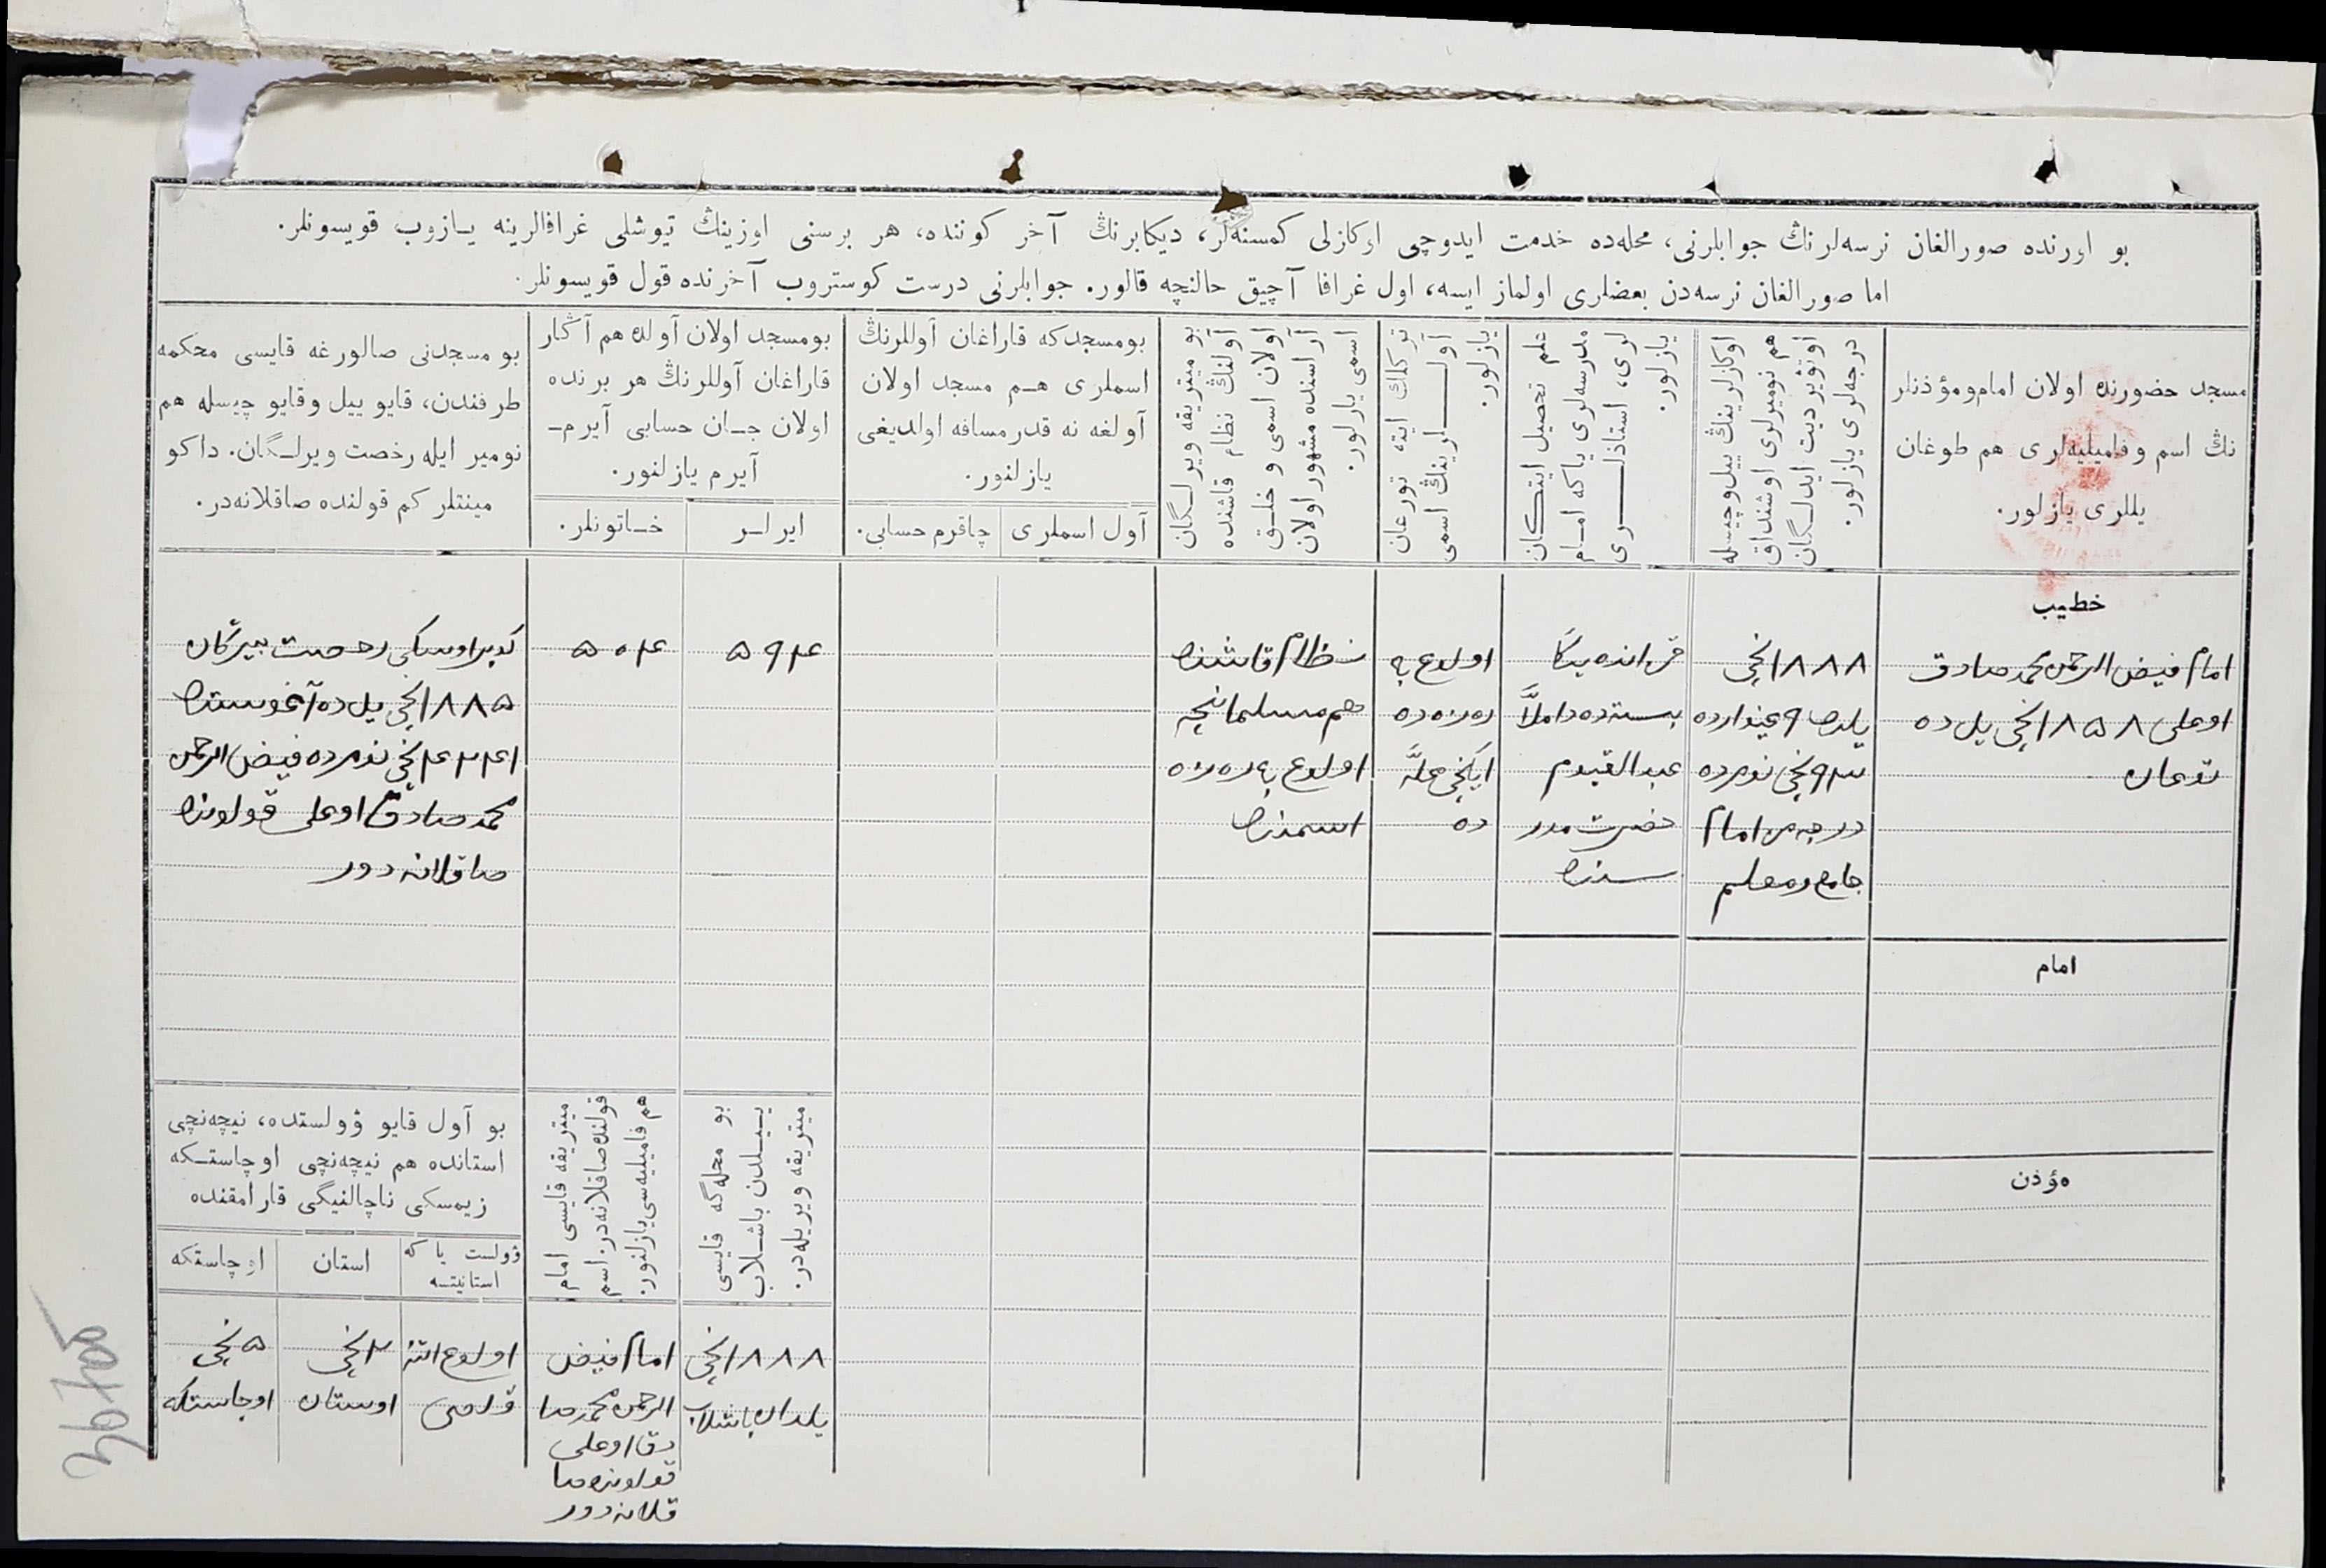 بو اورنده صورالغان نرسه‌لرنڭ جوابلرنی، محله‌ده خدمت ایدوچی اوکازلی کمسنه‌لر، دیکابرنڭ آخر کوننده، هر برسنی اوزینڭ تیوشلی غرافالرینه یازوب قویسونلر.
اما صورالغان نرسه‌دن بعضلری اولماز ایسه، اول غرافا آچیق حالنچه قالور. جوابلرنی درست کوستروب آخرنده قول قویسونلر.
مسجد حضورنده اولان امام ومؤذنلر
نڭ اسم وفامیلیه‌لری هم طوغان
یللری یازلور.
اوکازلرینڭ ییل وچیسله
هم نومیرلری اوشنداق
اوتۋیردیت ایدلگان
درجه‌لری یازلور.
علم تحصیل ایتکان
مدرسه‌لری یا که امام
لری، استاذلری
یازلور.
ترکلك ایته تورغان
آوللرینڭ اسمی
یازلور.
بو میتریقه ویرلگان
آولنڭ نظام قاشنده
اولان اسمی و خلق
آراسنده مشهور اولان
اسمی یازلور.
بو مسجدکه قاراغان آوللرنڭ
اسملری هم مسجد اولان
آولغه نه قدر مسافه اولدیغی
یازلنور.
آول اسملری
چاقرم حسابی.
بو مسجد اولان آولده هم آڭار
قاراغان آوللرنڭ هر برنده
اولان جان حسابی آیرم-
آیرم یازلنور.
ایرلر
خاتونلر.
بو مسجدنی صالورغه قایسی محکمه
طرفندن، قایو ییل وقایو چیسله هم
نومیر ایله رخصت ویرلگان. داکو
مینتلر کم قولنده صاقلانه‌در.
خطیب
امام فیض الرحمن محمد صادق
اوغلی ۱۸۵۸ نچی یل ده
توغان
۱۸۸۸ نچی
یلده ۹ غینوارده
۹۳ نچی نومرده
درجه‌س امام
جامع ومعلم
بسته‌ده داملاّ
عبدالقیوم
حضرت مدر
سنده
اولوغ
ایکنچی محلّه
ده
نظام قاشنده
هم مسلمانچه
اولوغ
اسمنده
۵۹۴
۵۰۴
رخصت بیرگان
۱۸۸۵ نچی یل ده آغوستده
۴۲۴۱ نچی نومرده فیض الرحمن
محمد صادق اوغلی قولونده
صاقلانه دور
امام
مؤذن
بو محله‌گه قایسی
ییلدن باشلاب
میتریقه ویریله‌در.
میتریقه قایسی امام
قولنده صاقلانه‌در. اسم
هم فامیلیه‌سی یازلنور.
بو آول قایو ۋولستده، نیچه‌نچی
استانده هم نیچه‌نچی اوچاستکه
زیمسکی ناچالنیگی قارامقنده
ۋولست یا که
استانیتسه
استان
اوچاستکه
۱۸۸۸ نچی
یلدان باشلاب
امام فیض
الرحمن محمد صا
دق اوغلی
قولونده صا
قلانه دور
اولوغ
۲ نچی
اوستان
۵ نچی
اوچاستکه